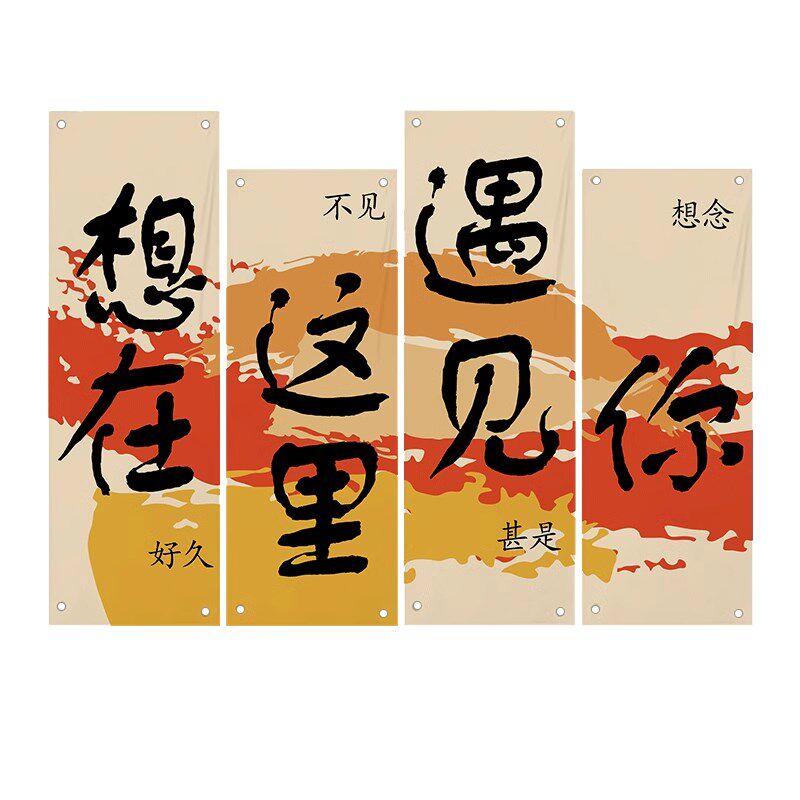 想在
好久
不见
这里
遇见
甚是
想念
你